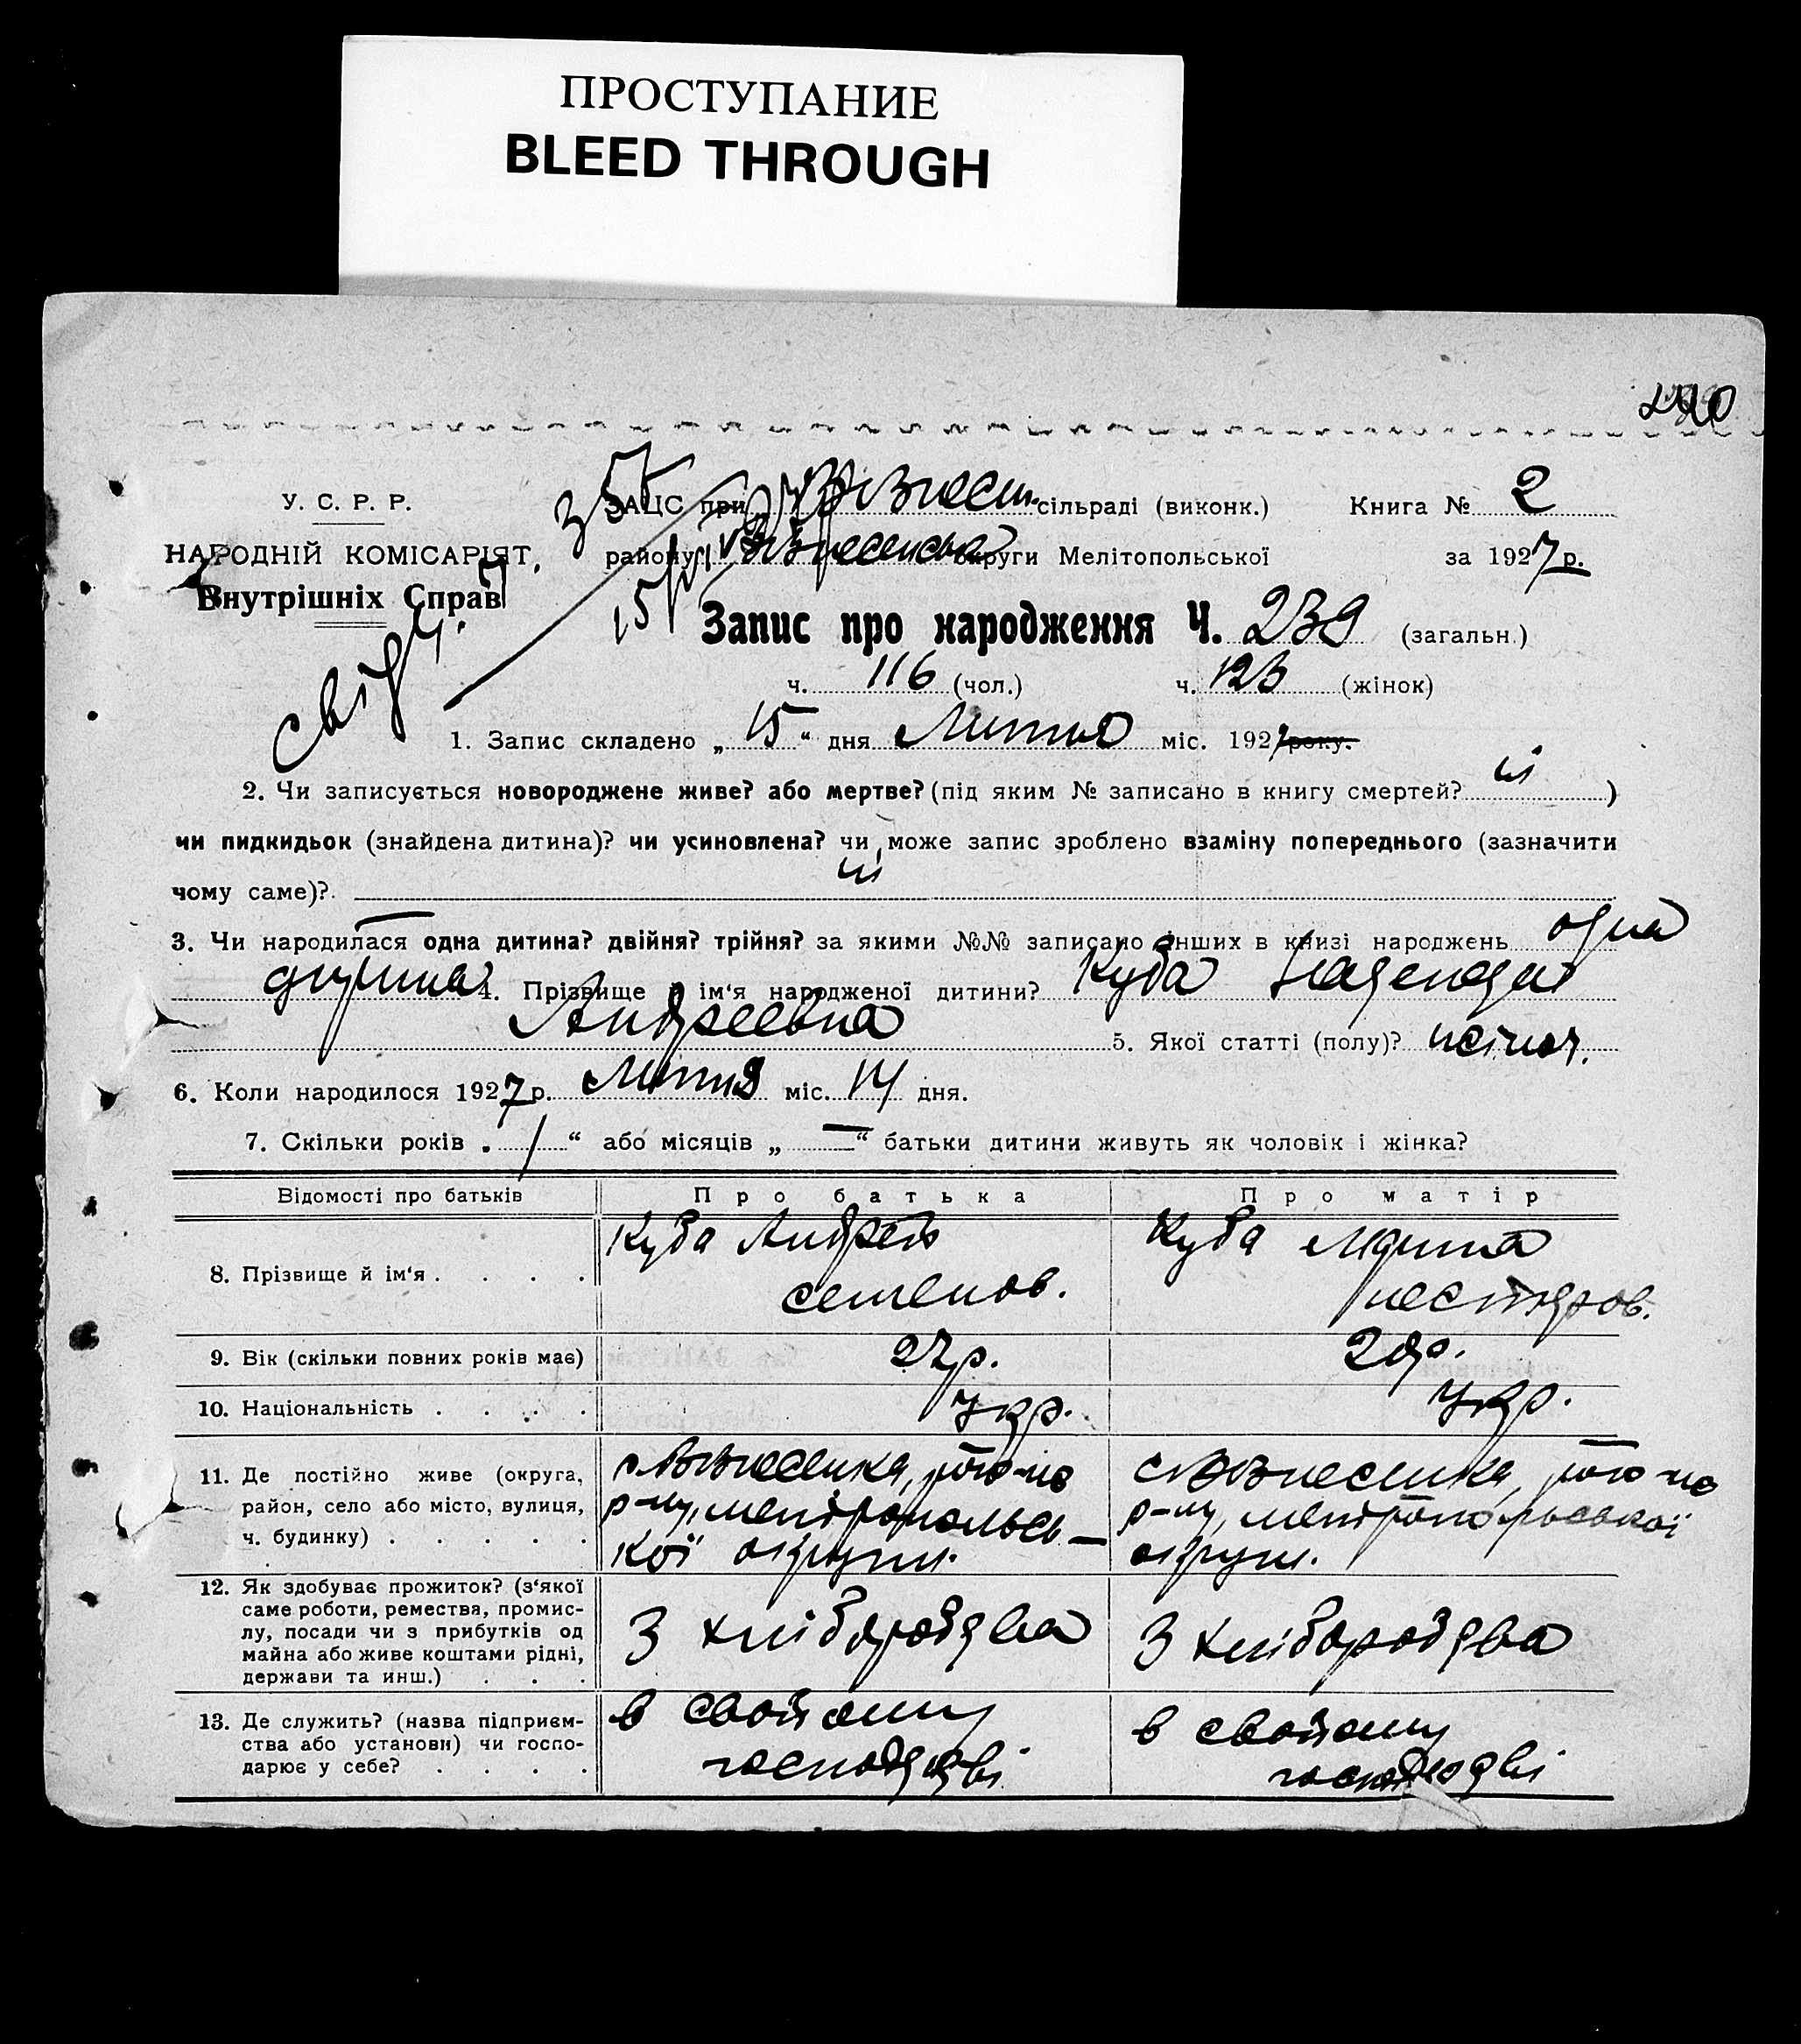 ПРОСТУПАНИЕ
BLEED THROUGH
У. С. Р. Р.
НАРОДНІЙ КОМІСАРІЯТ
Внутрішніх Справ
ЗАЦС при Вознесен. сільраді (виконк.) Книга № 2
району Вознесенськ округи Мелітопольської за 1927 р.
Запис про народження Ч. 239 (загальн.)
ч. 116 (чол.) ч. 123 (жінок)
1. Запис складено „ 15 “ дня Липня міс. 1927 року.
2. Чи записується новороджене живе? або мертве? (під яким № записано в книгу смертей? )
чи пидкидьок (знайдена дитина)? чи усиновлена? чи може запис зроблено взаміну попереднього (зазначити
чому саме)?
3. Чи народилася одна дитина? двійня? трійня? за якими №№ записано інших в книзі народжень одна
дитина 4. Прізвище й ім‘я народженої дитини? Куба Надежда
Андреевна 5. Якої статті (полу)? жіноч.
6. Коли народилося 1927 р. Липня міс. 14 дня.
7. Скільки років „ / “ або місяців „ — “ батьки дитини живуть як чоловік і жінка?
Відомості про батьків Про батька Про матір
8. Прізвище й ім‘я . . . . Куба Андрей Семенов. Куба Марина Нестеров.
9. Вік (скільки повних років має) 27 р. р.
10. Національність . . . . Укр. Укр.
11. Де постійно живе (округа, район, село або місто, вулиця, ч. будинку) . . . . .
с. Вознесенка, того-ж
р-ну, Мелітопольсь-
кої округи.
с. Вознесенка, того-ж
р-ну, Мелітопольської
округи.
12. Як здобуває прожиток? (з‘якої
саме роботи, ремества, промис-
лу, посади чи з прибутків од
майна або живе коштами рідні,
держави та инш.) . . .
З хліборобдва
З хліборобдва
13. Де служить? (назва підприєм-
ства або установи) чи госпо-
дарює у себе? . . . .
в свойому
господдві
в свойому
господдві